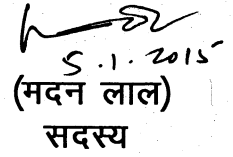 5.1.2015
(मदन लाल)
सदस्य